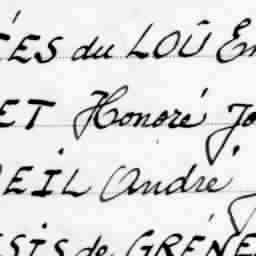 ÉES du LOÛ En
ET Honoré Jo
EIL André J
SIS de GRÉNE